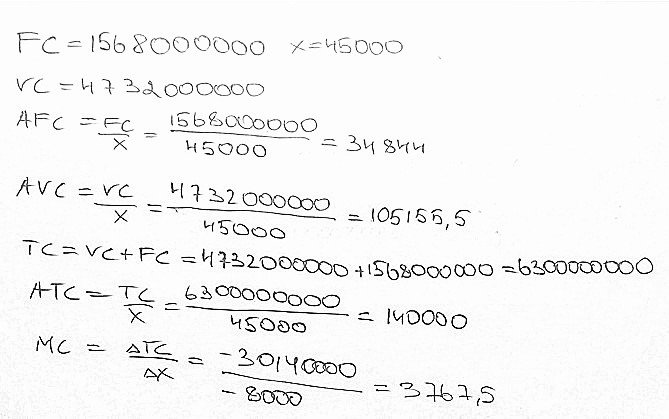 FC = 1568000000 x=45000
VC = 4732000000
AFC = FC/X = 1568000000/45000 = 34844
AVC = VC/X = 4732000000/45000 = 105155,5
TC = VC + FC = 4732000000 + 1568000000 = 6300000000
ATC = TC/X = 6300000000/45000 = 140000
MC = ΔTC/ΔX = -30140000/-8000 = 3767,5